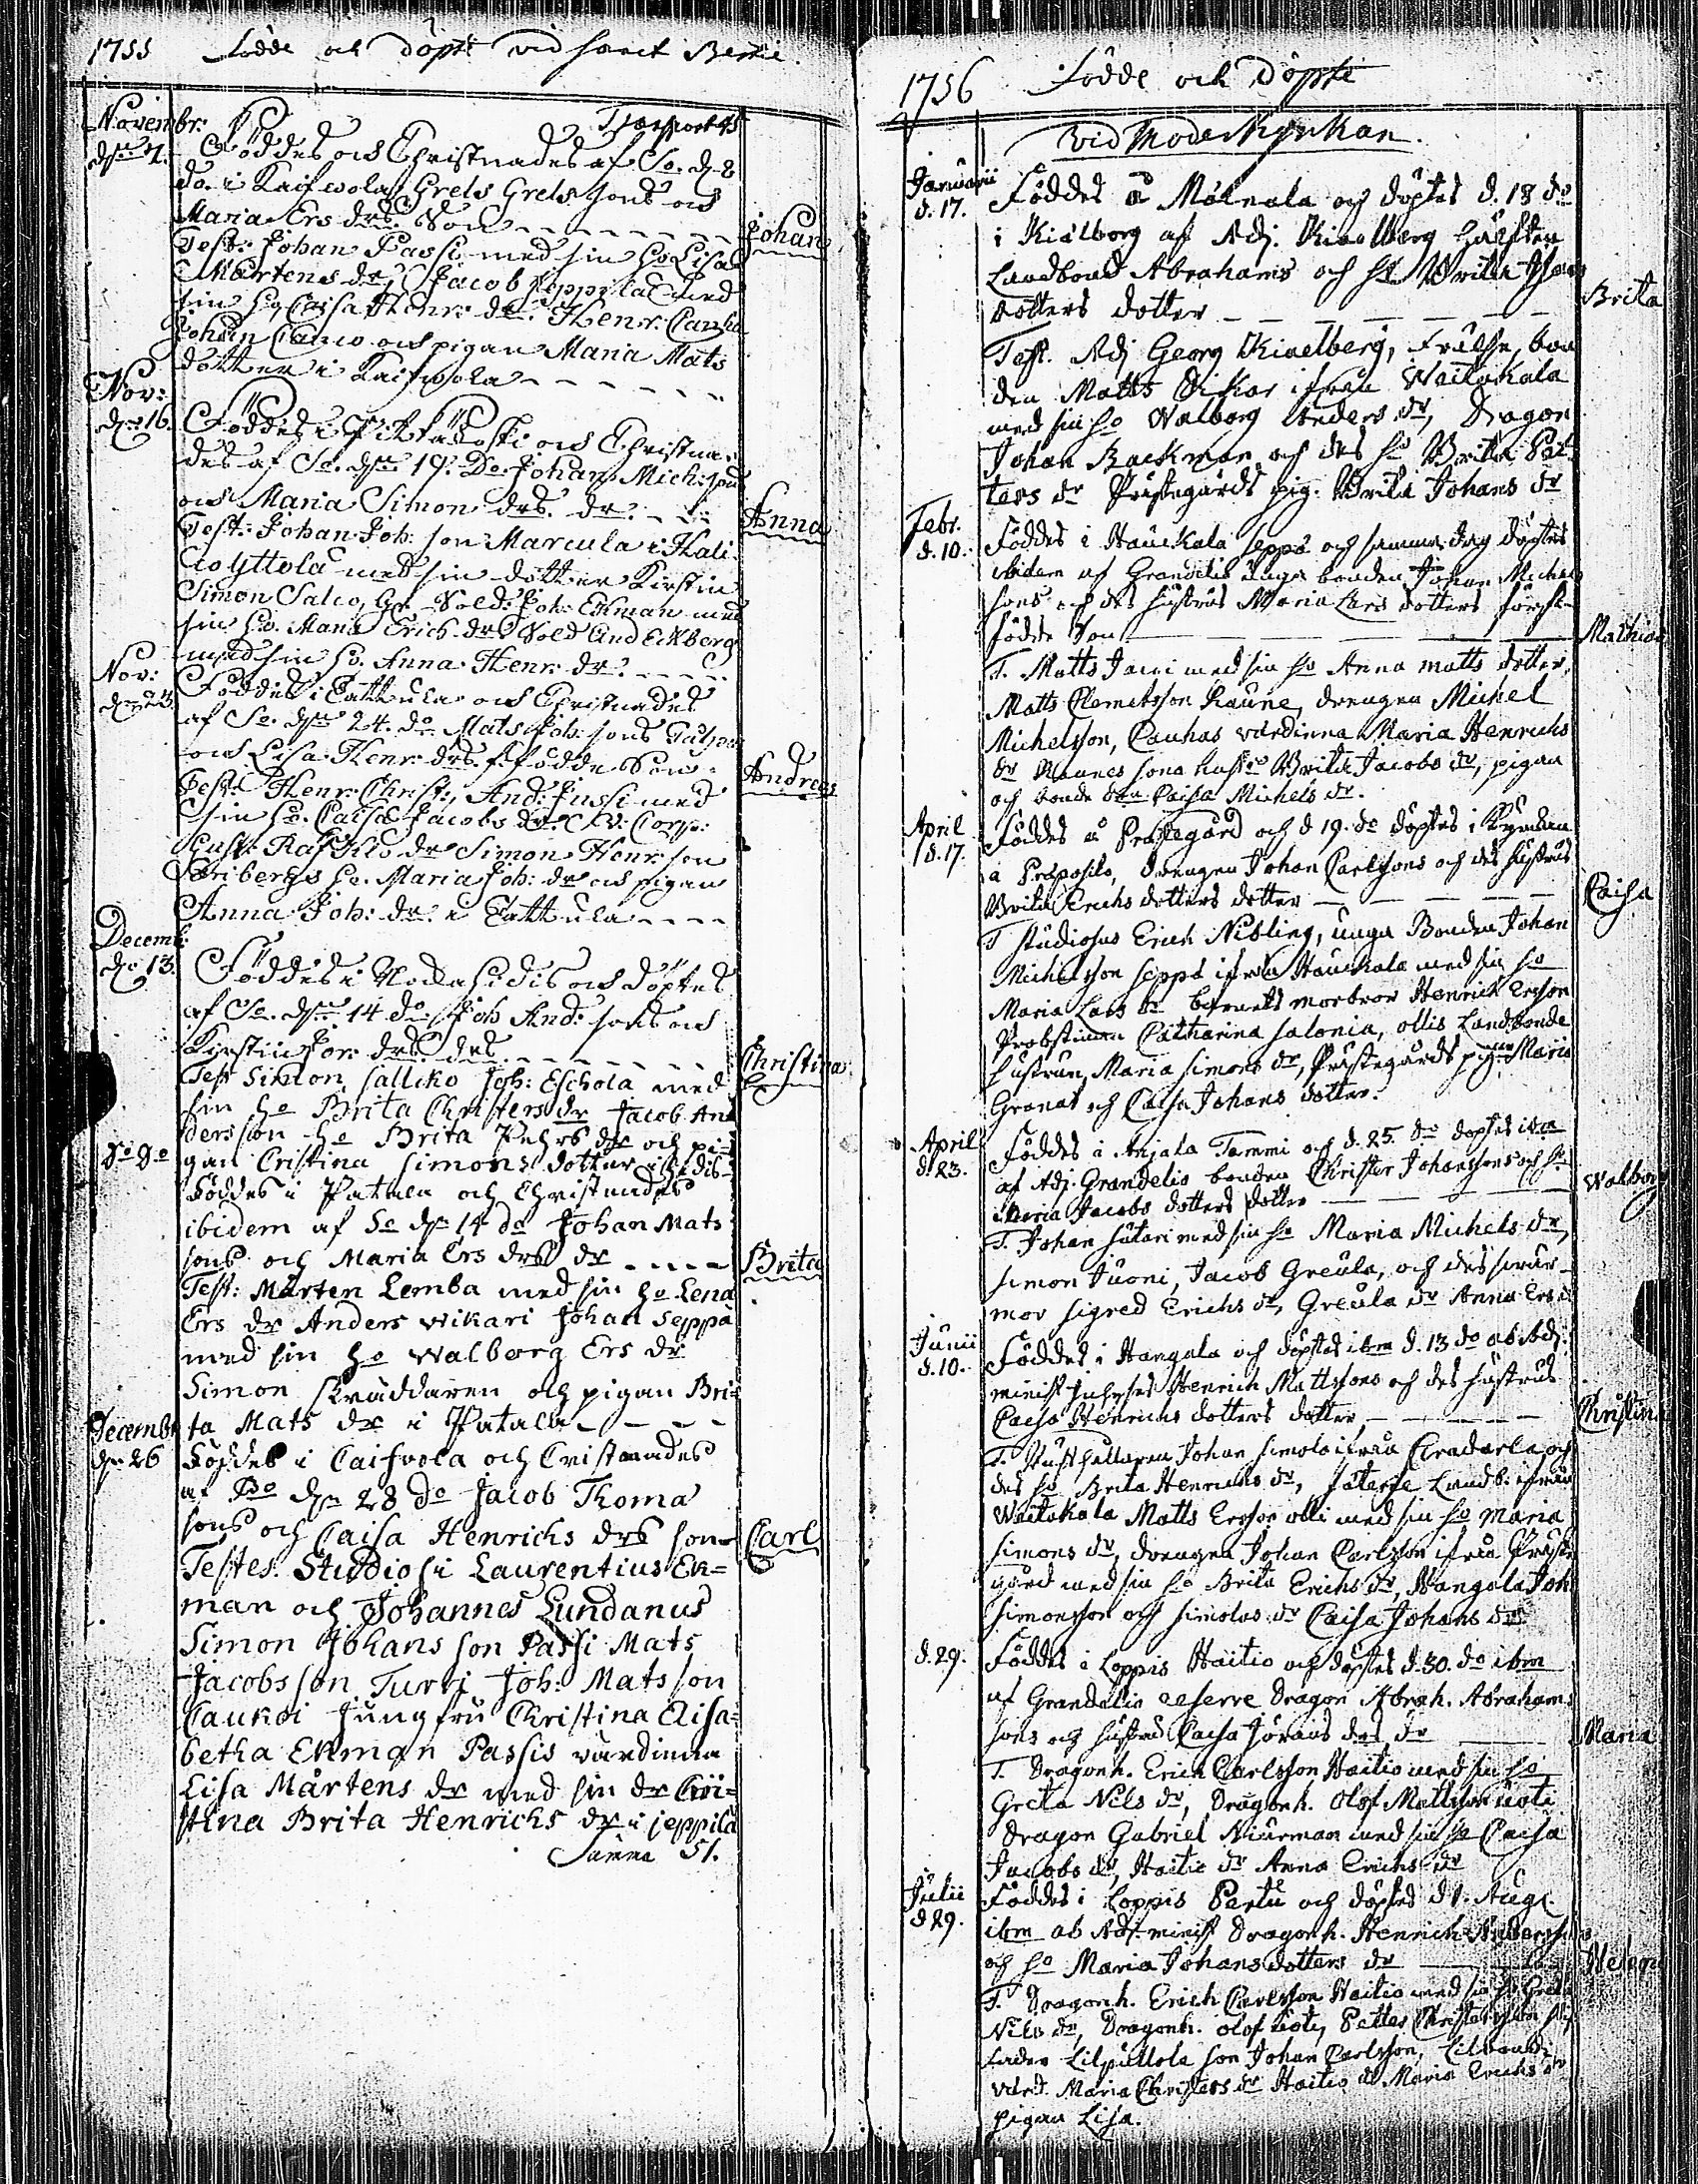 1755 Födde och döpte vid Sanct Bertil.
Novembr: Transport 45
d. 7. Föddes och Christnades af So. d. 8
do. i Kaifwola Grels Grels sons och
Maria Ers drs. Son - - - - - - - Johan
Test: Johan Passi med sin ho Lisa
Mårtens dr, Jacob Jeppilä med
sin ho Caisa Henr: dr. Henr:
Johan och pigan Maria Mats
dotter i Kaifwola - - - - - -
Nov:
d. 16. Föddes i och Christna-
des af So. d. 19. do. Johan Mich: sons
och Maria Simon drs. dr. - - - Anna
Test: Johan Joh: son Marcula i
med sin dotter Kirstin
Simon Salco, Sold: Joh: Ekman med
sin ho. Maria Erich. dr. Sold And Eckberg
med sin ho. Anna Henr: dr. - - - -
Nov:
d. 23. Föddes i Tattula och Christnades
af So. d. 24. do. Mats Joh: sons
och Lisa Henr: drs. födde Son. Andreas
Test: Henr: Christ:, And: Jussi med
sin ho. Caisa Jacobs dr.
dr Simon Henr: son
ho. Maria Joh: dr och pigan
Anna Joh: dr. i Tattula - - - -
Decemb:
d. 13. Föddes i och döptes
af So. d. 14 do. Joh And: sons och
Kirstin drs. dr. - - - - - - - Christina
Test Simon Salliko Joh: Eschola med
sin ho Brita Christers dr Jacob An-
dersson ho Brita Pehrs dr och pi-
gan Cristina Simons dotter
do do Föddes i Patala och Christnades
ibidem af So d. 14 do Johan Mats
sons och Maria Ers drs dr - - - - Brita
Test: Mårten Lemba med sin ho Lena
Ers dr Anders wikari Johan Seppä
med sin ho Walborg Ers dr
Simon skräddaren och pigan Bri=
ta Mats dr i Patala - - - -
Decembr
d. 26 Föddes i Caifvola och Cristnades
af Bo d. 28 do Jacob Thoma
sons och Caisa Henrichs drs son Carl
Testes. Studiosi Laurentius Ek=
man och Johannes Lundanus
Simon Johans son Passi Mats
Jacobsson Turki Joh: Mats son
Caukoi Jungfru Christina Elisa=
betha Ekman Passis värdinna
Lisa Mårtens dr med sin dr Cri=
stina Brita Henrichs dr i jeppilä
Summa 51.
1756 Födde och Döpte
vid Moderkyrkan.
Januarii
d. 17. Föddes å Målnala och döptes d. 18 do
i Kiälborg af Adj. Kiaelberg
Landbond Abrahams och ho Brita
dotters dotter - - - - - - Brita
Test. Adj Georg Kiaelberg, Frälse bon
den Matts Sickar ifrån Waitakala
med sin ho Walborg Anders dr, Dragon
Johan Backman och des ho Brita Pet-
ters dr Prästegårds pig. Brita Johans dr
Febr.
d. 10. Föddes i Hauckala Seppä och samma dag döptes
ibidem af Grandelio unga bonden Johan Michels
sons och des hustrus Maria Lars dotters först-
födde Son - - - Mathias
T. Matts Jacoi med sin ho Anna Matts dotter,
Matts Clemetsson Raune, drengen Michel
Michelsson, Cauhas värdinna Maria Henrichs
dr Raunes sona hustr Brita Jacobs dr, pigan
och bonde Caisa Michels dr.
April
d. 17. Föddes å Prästegård och d 19. do döptes i Kyrckan
a Præposito, drengen Johan Carlssons och des hustrus
Brita Erichs dotters dotter - - - - Caisa
T Studiosus Erich Nibling, unga Bonden Johan
Michelsson Seppä ifrån Hauckala med sin ho
Maria Lars dr barnets morbror Henrich Ersson
Probstinnan Catharina Salonia, ollis Landbonde
hustrun Maria Simons dr, Prästegårds pigan Maria
Granat och Caisa Johans dotter.
April
d. 23. Föddes i Anjala Tammi och d. 25. do döptes
af Adj. Grandelio bonden Christer Johanssons och ho
Maria Jacobs dotters dotter - - - Walborg
T. Johan Sutari med sin ho Maria Michels dr,
Simon Juoni, Jacob Greula, och des svär-
mor Sigred Erichs dr, Greula dr Anna Ers dr
Junii
d. 10. Föddes i Hangala och döptes ibm d. 13 do ab Adj:
minist. Henrich Mattssons och des hustrus
Caisa Henrichs dotters dotter, - - - - Christina
T. Johan Simola ifrån och
des ho Brita Henrichs dr, Säterfe Landb: ifrån
Waitakala Matts Ersson olli med sin ho Maria
Simons dr, drengen Johan Carlsson ifrån Präste-
gård med sin ho Brita Erichs dr, Hangala Joh
Simonsson och Simolas dr Caisa Johans dr
d. 29. Föddes i Loppis Haitio och döptes d. 30. do ibm
af Grandelio reserve Dragon Abrah. Abrahams
sons och hustru Caisa Jörans drs dr ——— Maria
T. Dragonh. Erich Carlsson Haitio med sin ho
Greta Nils dr, Dragonh. Olof Mattsson uoti
Dragon Gabriel Niurman med sin ho Caisa
Jacobs dr, Haitio dr Anna Erichs dr
Julii
d 29. Föddes i Loppis Pertu och döptes d 1. Aug.
ibm ab Adj. minist Dragonh. Henrich Andersson
och ho Maria Johans dotters dr —— Helena
T. Dragonh. Erich Carlsson Haitio med sin ho Greta
Nils dr, Dragonh. olof uoti, Petter Christersson
Lilputtola son Johan Carlsson,
värd. Maria Christers dr Haitio dr Maria Erichs dr
pigan Lisa.